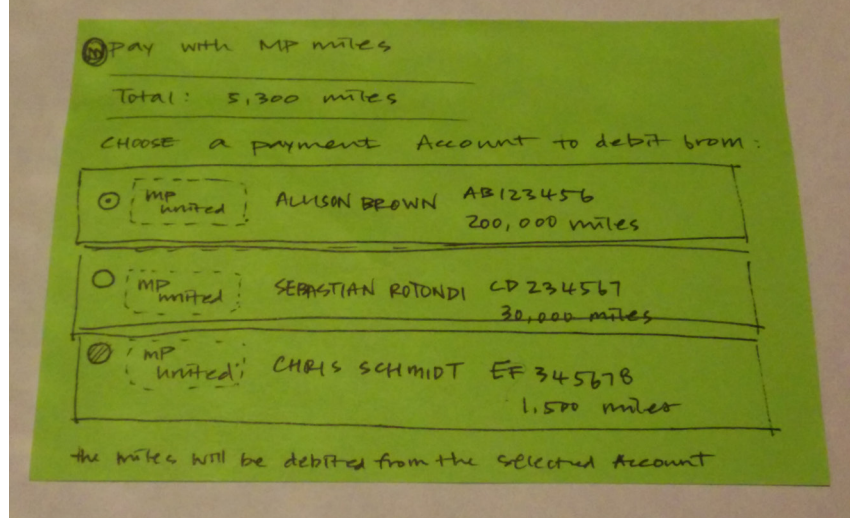 Pay with MP miles
Total: 5,300 miles
CHOOSE a payment Account to debit from:
MP united ALLISON BROWN AB123456
200,000 miles
MP united SEBASTIAN ROTONDI CD234567
30,000 miles
MP united CHRIS SCHMIDT EF345678
1,500 miles
the miles will be debited from the selected Account